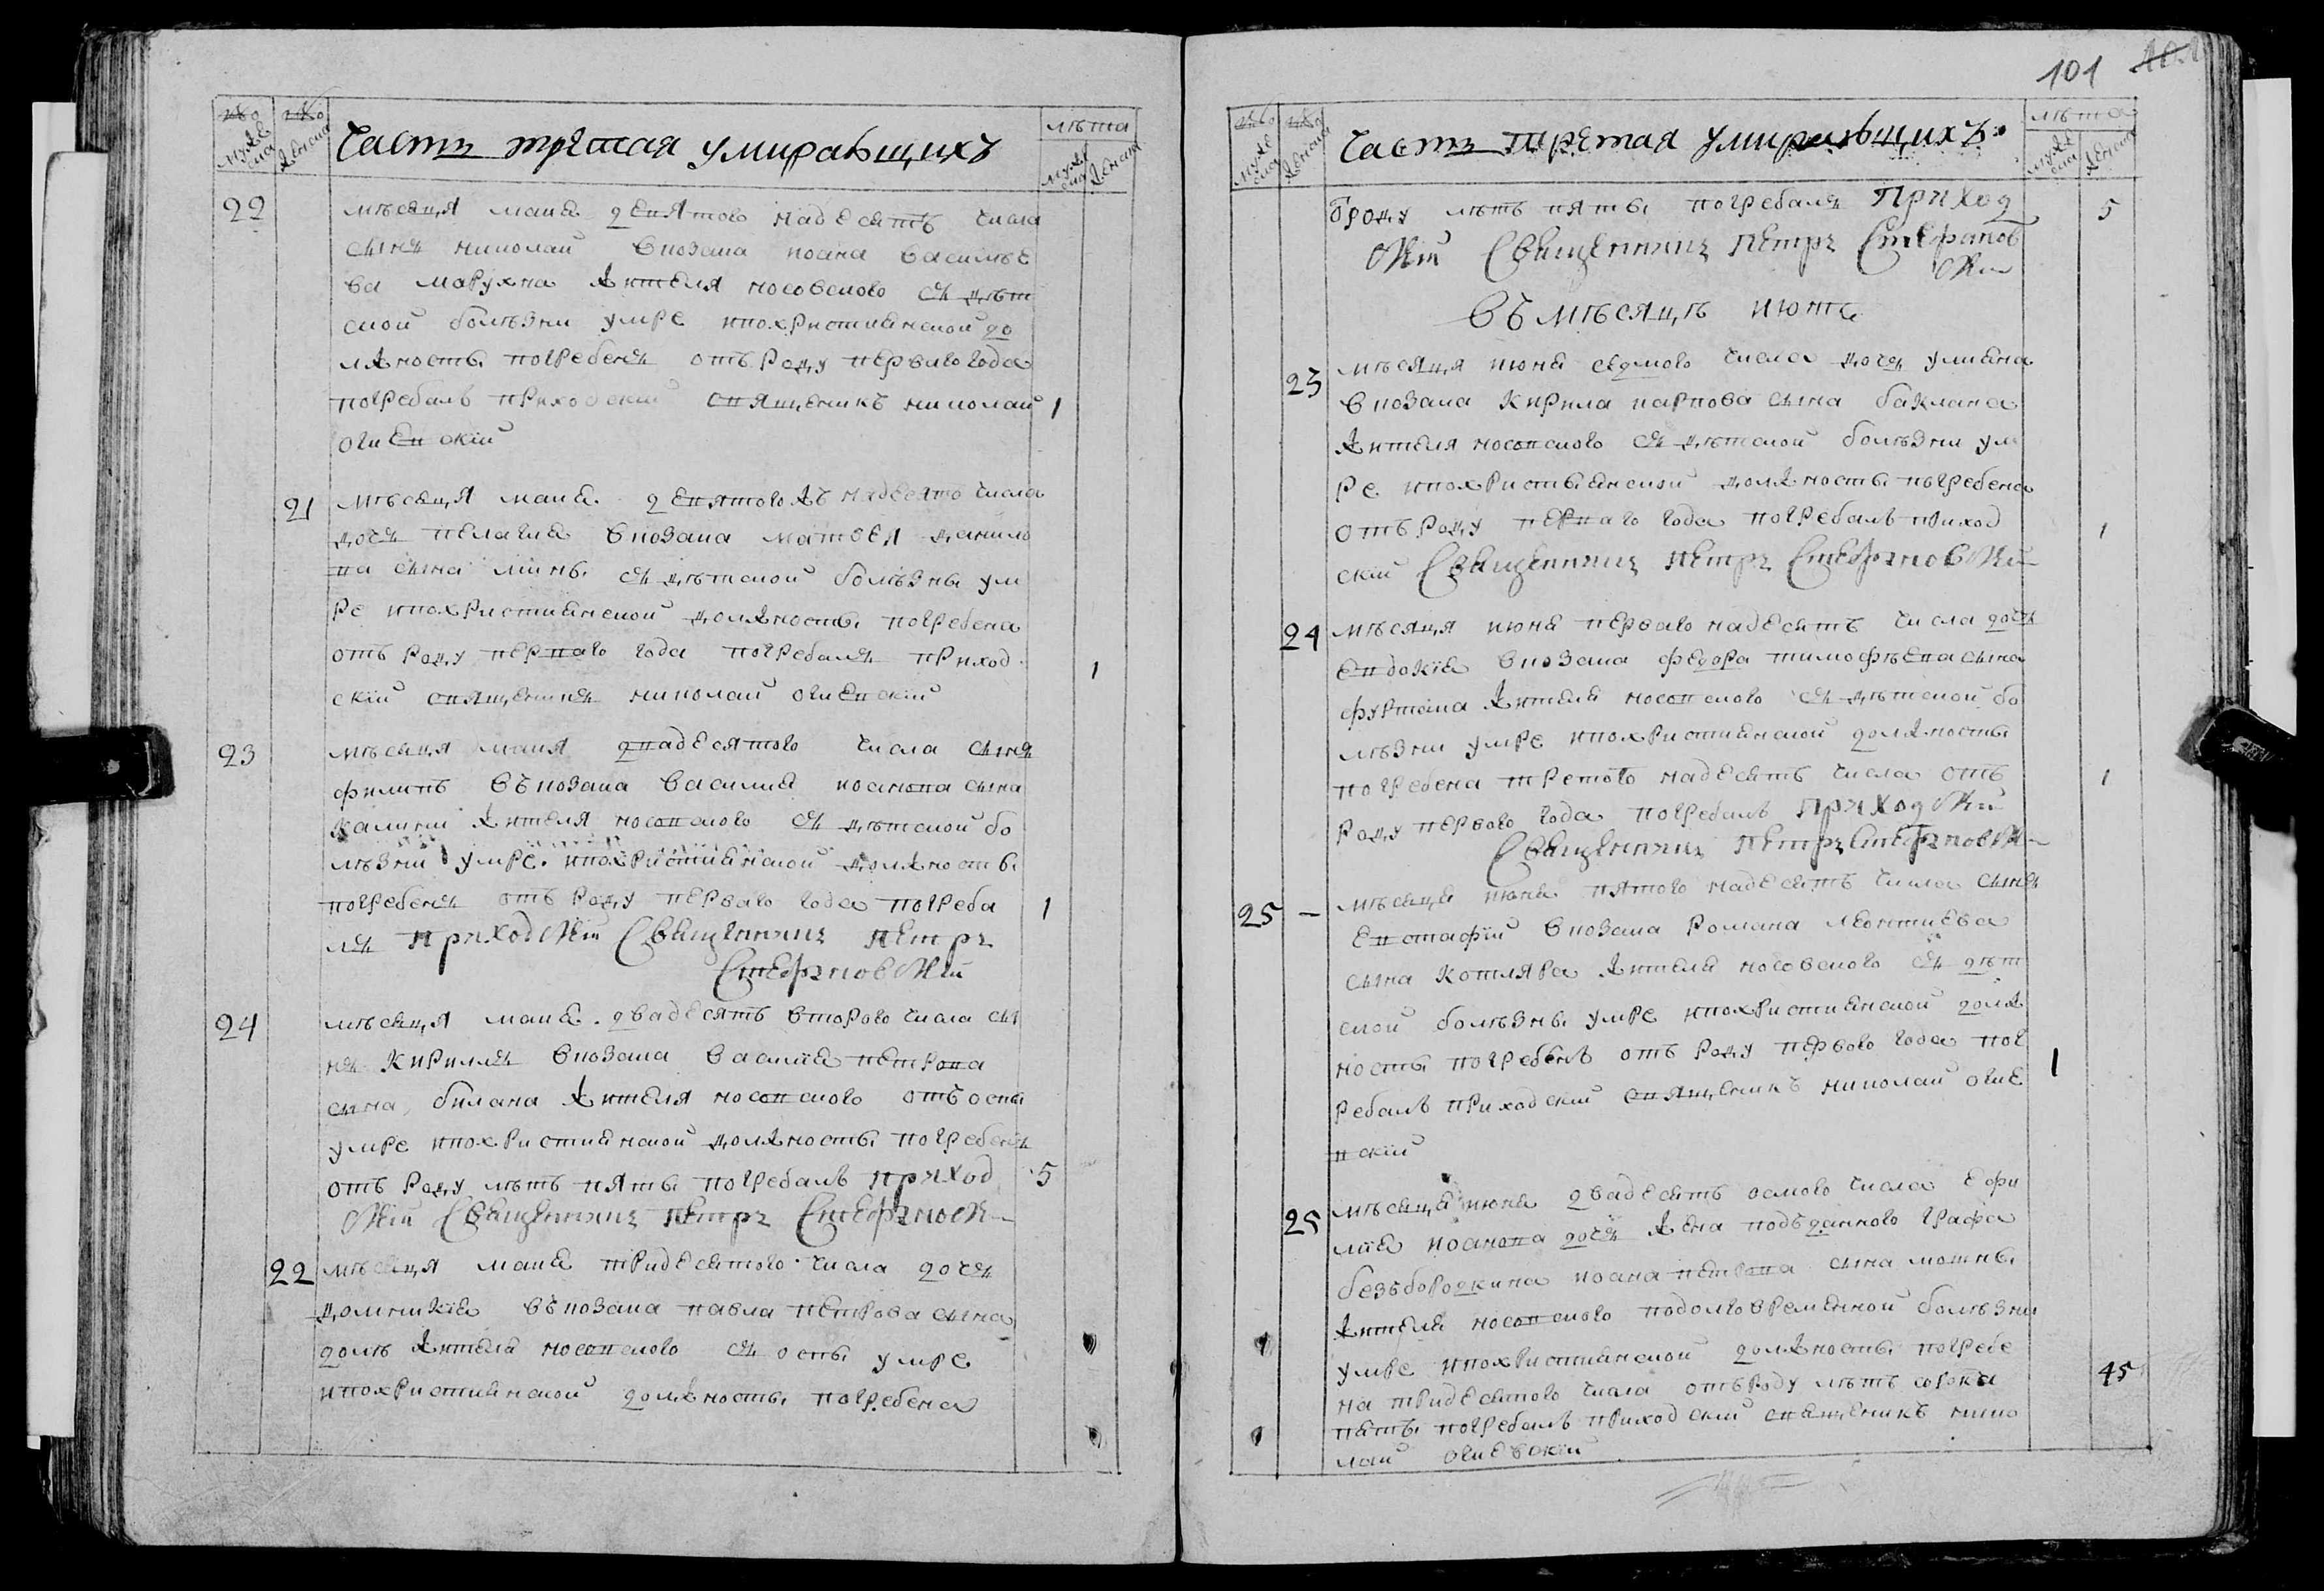 число мужеска
число женска
Часть третая умиравшихъ
лѣта
мужеска
женска
22
мѣсяця маия девятого надесять числа
сынъ николай вкозака иоана василье
ва марухна жителя носовского съ дѣт
ской болѣзни умре ипохристиянской до
лжносты погребенъ отъ роду перваго года
погребалъ приходский священикъ николай 1
огиевскій
21
мѣсяця маия девятогожъ надесято числа
дочъ пелагия вкозака матвея данило
ва сына мины съ дѣтской болѣзны ум
ре ипохристиянской должносты погребена
отъ роду перваго года погребалъ приход
1
скій священикъ николай огиевскій
23
мѣсяця маия двадесятого числа сынъ
филипъ въкозака василия иоанова сына
калини жителя носовского съ дѣтской бо
лѣзни умре ипохристиянской должносты
погребенъ отъ роду перваго года погреба 1
лъ приходскій Священникъ Петръ
Стефановскій
24
мѣсяця маия двадесять второго числа сы
нъ кирилъ вкозака василия петрова
сына билана жителя носовского отъ оспы
умре ипохристиянской должносты погребенъ
отъ роду лѣтъ пяты погребалъ приход 5
скій Священникъ Петръ Стефановск
22
мѣсяця маия тридесятого числа дочъ
домникия въкозака павла петрова сына
доля жителя носовского съ оспы умре
ипохристиянской должносты погребена
101
число мужеска
число женска
Часть третая умиравшихъ
лѣта
мужеска
женска
Ѿроду лѣтъ пяты погребалъ Приход 5
скій Священникъ Петръ Стефанов
скій
Въ мѣсяцѣ июнѣ
23
мѣсяця июня седмого числа дочъ улияна
вкозака кирила карпова сына баклана
жителя носовского съ дѣтской болѣзни ум
ре ипохристыянской должносты погребена
отъ роду перваго года погребалъ приход 1
скій Священникъ Петръ Стефановскій
24
мѣсяця июня перваго надесять числа дочъ
евдокия вкозака федора тимофѣева сына
фуртака жителя носовского съ дѣтской бо
лѣзни умре ипохристиянской должносты
погребена третого надесять числа отъ 1
роду первого года погребалъ Приходскій
Священникъ Петръ Стефановск
25 —
мѣсяця июня пятого надесять числа сынъ
евстафій вкозака романа леонтиева
сына котляра жителя носовского съ дѣт
ской болѣзны умре ипохристиянской долж
носты погребенъ отъ роду первого года пог 1
ребалъ приходский священикъ николай огие
вскій
25
мѣсяця июня двадесять осмого числа ефи
мія иоанова дочъ жена подъданного графа
безъбородкина иоана петрова сына мотны
жителя носовского подолговременной болѣзни
умре ипохристиянской должносты погребе
на тридесятого числа отъроду лѣтъ сорокъ 45
пяты погребалъ приходский священикъ нико
лай огиевскій